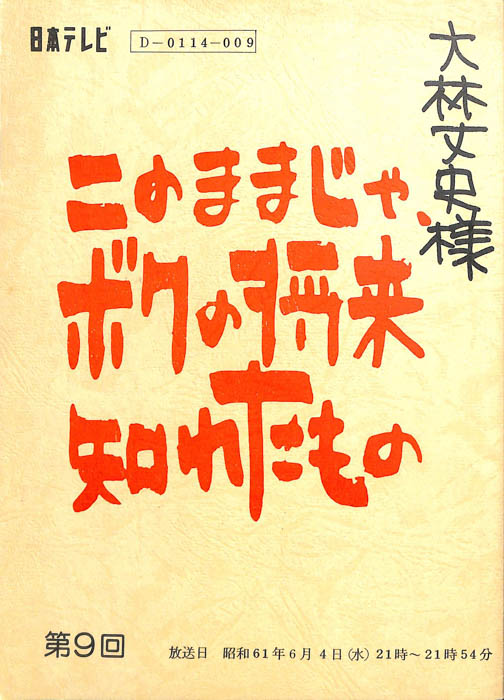 日本テレビ
D-0114-009
大林丈史様
このままじゃ、
ボクの将来
知れたもの
第9回
放送日 昭和61年6月4日(水)21時~21時54分